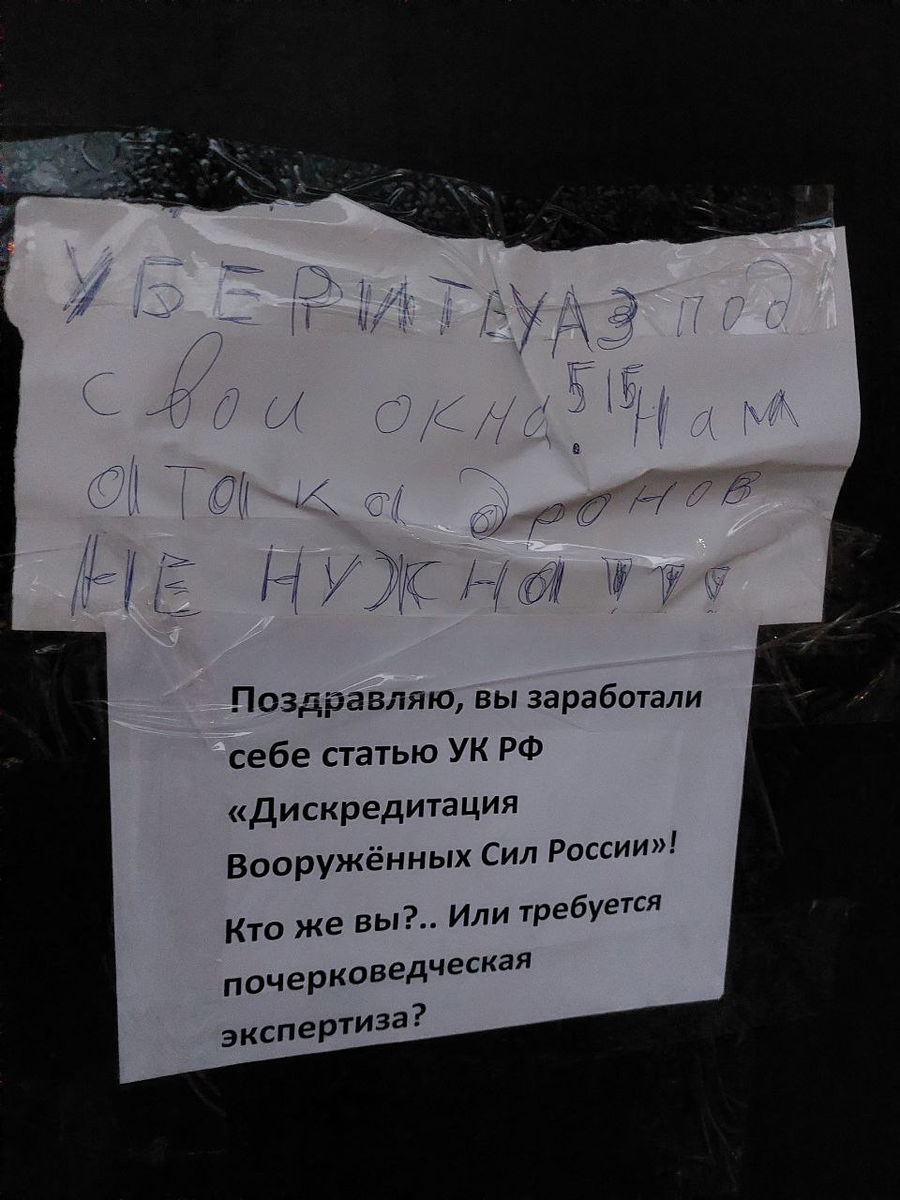 УБЕРИТЕ УАЗ под
свои окна. 515 Нам
атака дронов
НЕ НУЖНА!!!
Поздравляю, вы заработали
себе статью УК РФ
«Дискредитация
Вооружённых Сил России»!
Кто же вы?.. Или требуется
почерковедческая
экспертиза?